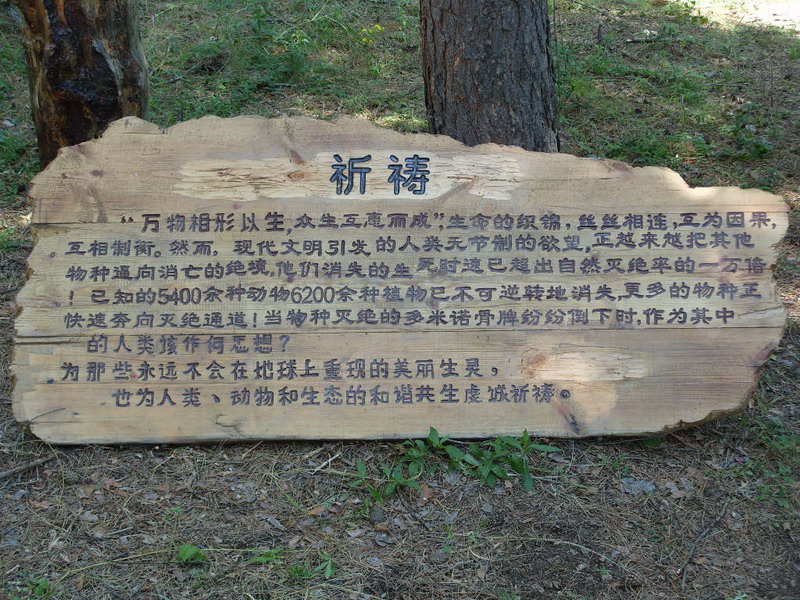 祈祷
“万物相形以生,众生互惠而成”,生命的织锦,丝丝相连,互为因果,
互相制衡。然而,现代文明引发的人类无节制的欲望,正越来越把其他
物种逼向消亡的绝境,他们消失的生死时速已超出自然灭绝率的一万倍
!已知的5400余种动物6200余种植物已不可逆转地消失,更多的物种正
快速奔向灭绝通道!当物种灭绝的多米诺骨牌纷纷倒下时,作为其中
的人类该作何思想?
为那些永远不会在地球上重现的美丽生灵,
也为人类、动物和生态的和谐共生虔诚祈祷。